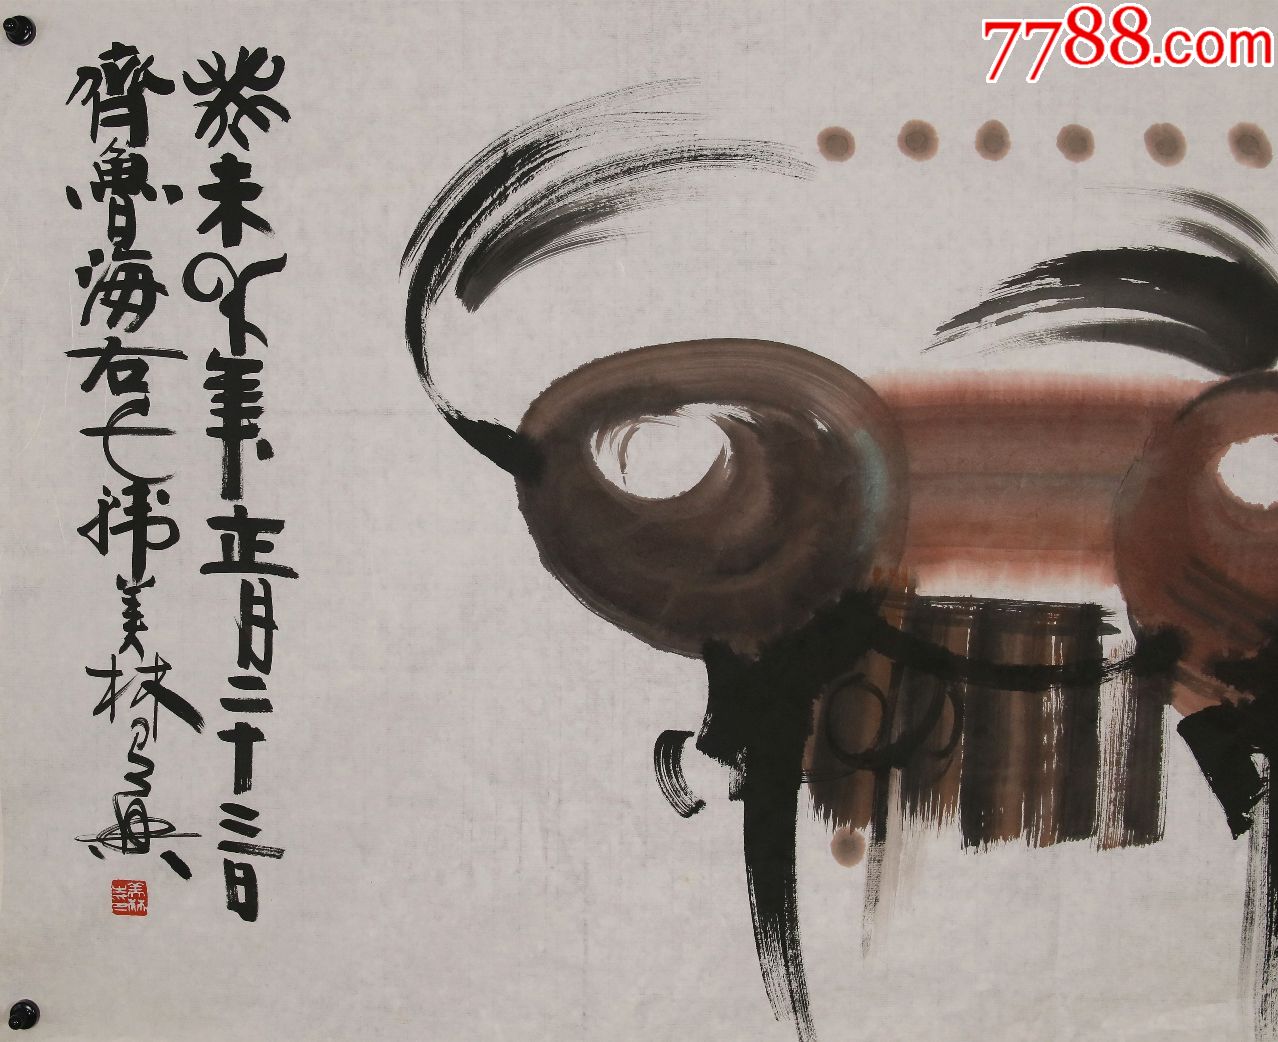 癸未八年正月二十三日
齊魯海右七祎美林
美林
7788.com